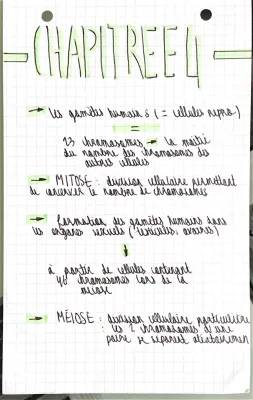 CHAPITRE 4
→ Les gamètes humains (= cellules repro.)
=
23 chromosomes → la moitié
du nombre des chromosomes des
autres cellules
→ MITOSE : division cellulaire permettant
de conserver le nombre de chromosomes
→ Formation des gamètes humains dans
les organes sexuels (testicules, ovaires)
à partir de cellules contenant
46 chromosomes lors de la
méiose
→ MÉIOSE : division cellulaire particulière
: les 2 chromosomes d'une
paire se séparent aléatoirement